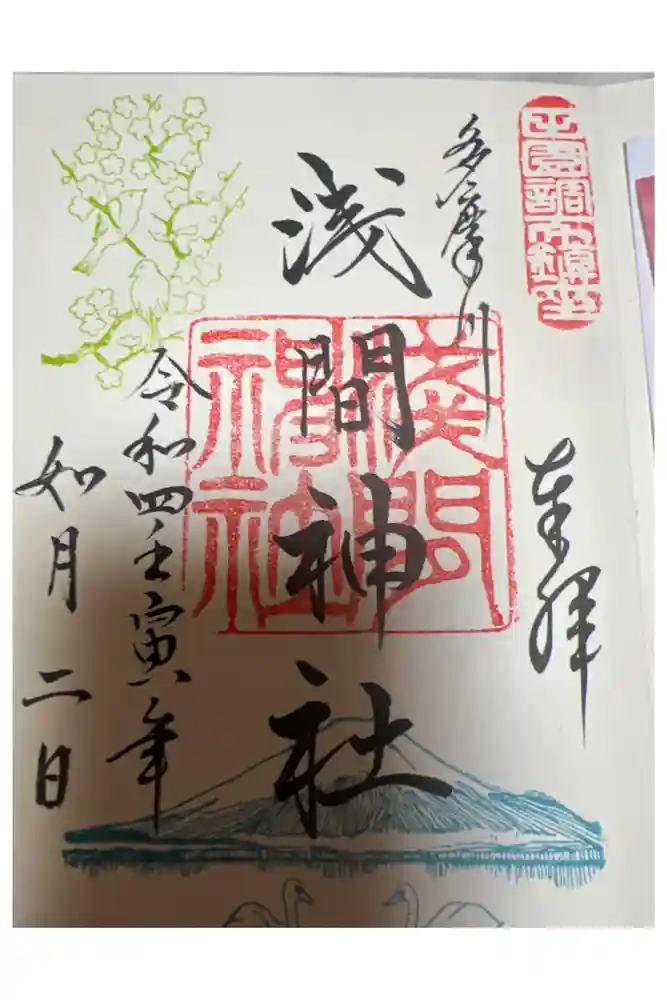 田園調布鎮座
奉拝
多摩川
浅間神社
浅間
神社
令和四壬寅年
如月二日